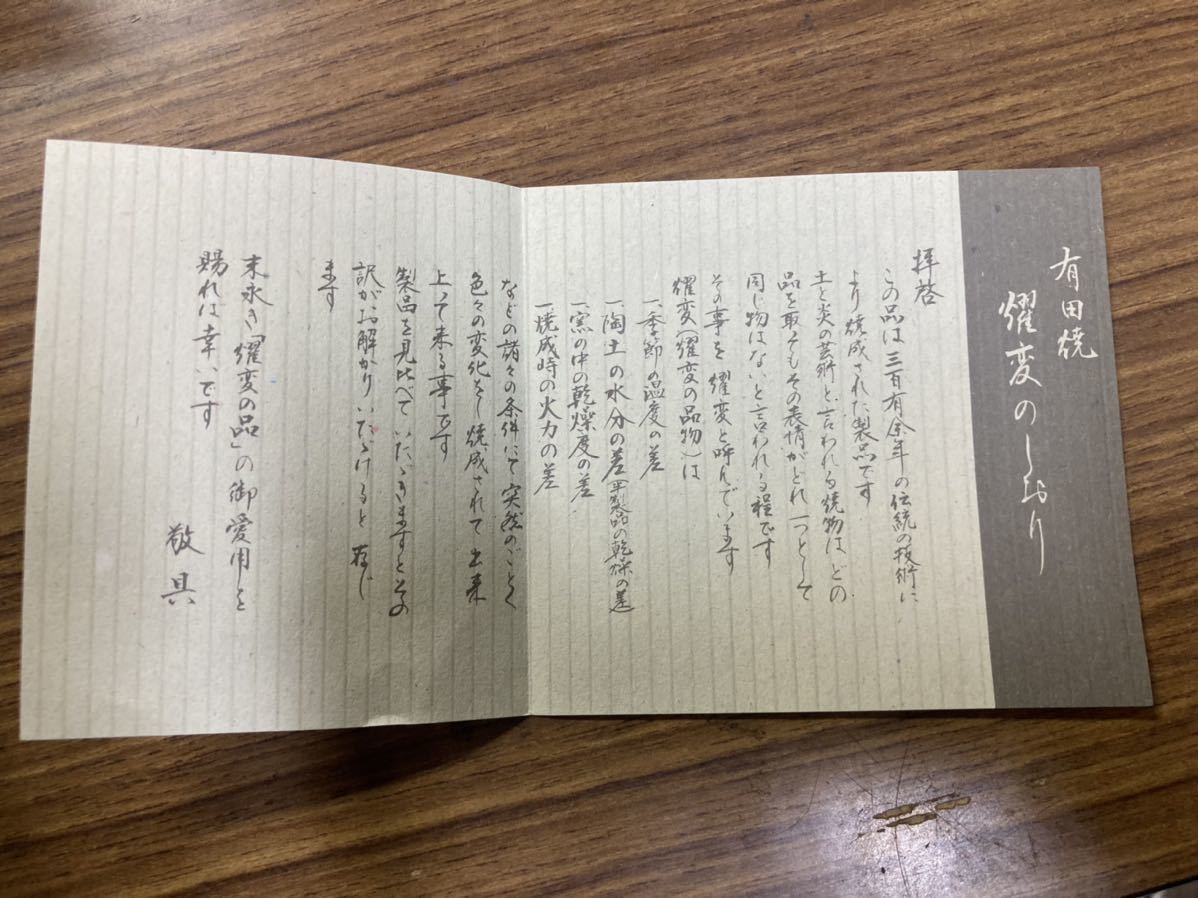 有田焼
耀変のしおり
拝啓
この品は三百有余年の伝統の技術に
より焼成された製品です
土と炎の芸術と言われる焼物はどの
品を取ってもその表情がどれ一つとして
同じ物はないと言われる程です
その事を耀変と呼んでいます
耀変(耀変の品物)は
一、季節の温度の差
一、陶土の水分の差(半製品の乾燥の差)
一、窯の中の乾燥度の差
一、焼成時の火力の差
などの諸々の条件にて突然のごとく
色々の変化をし焼成されて出来
上って来る事です
製品を見比べていたゞきますとその
訳がお解かりいたゞけると存じ
ます
末永き「耀変の品」の御愛用を
賜れば幸いです
敬具